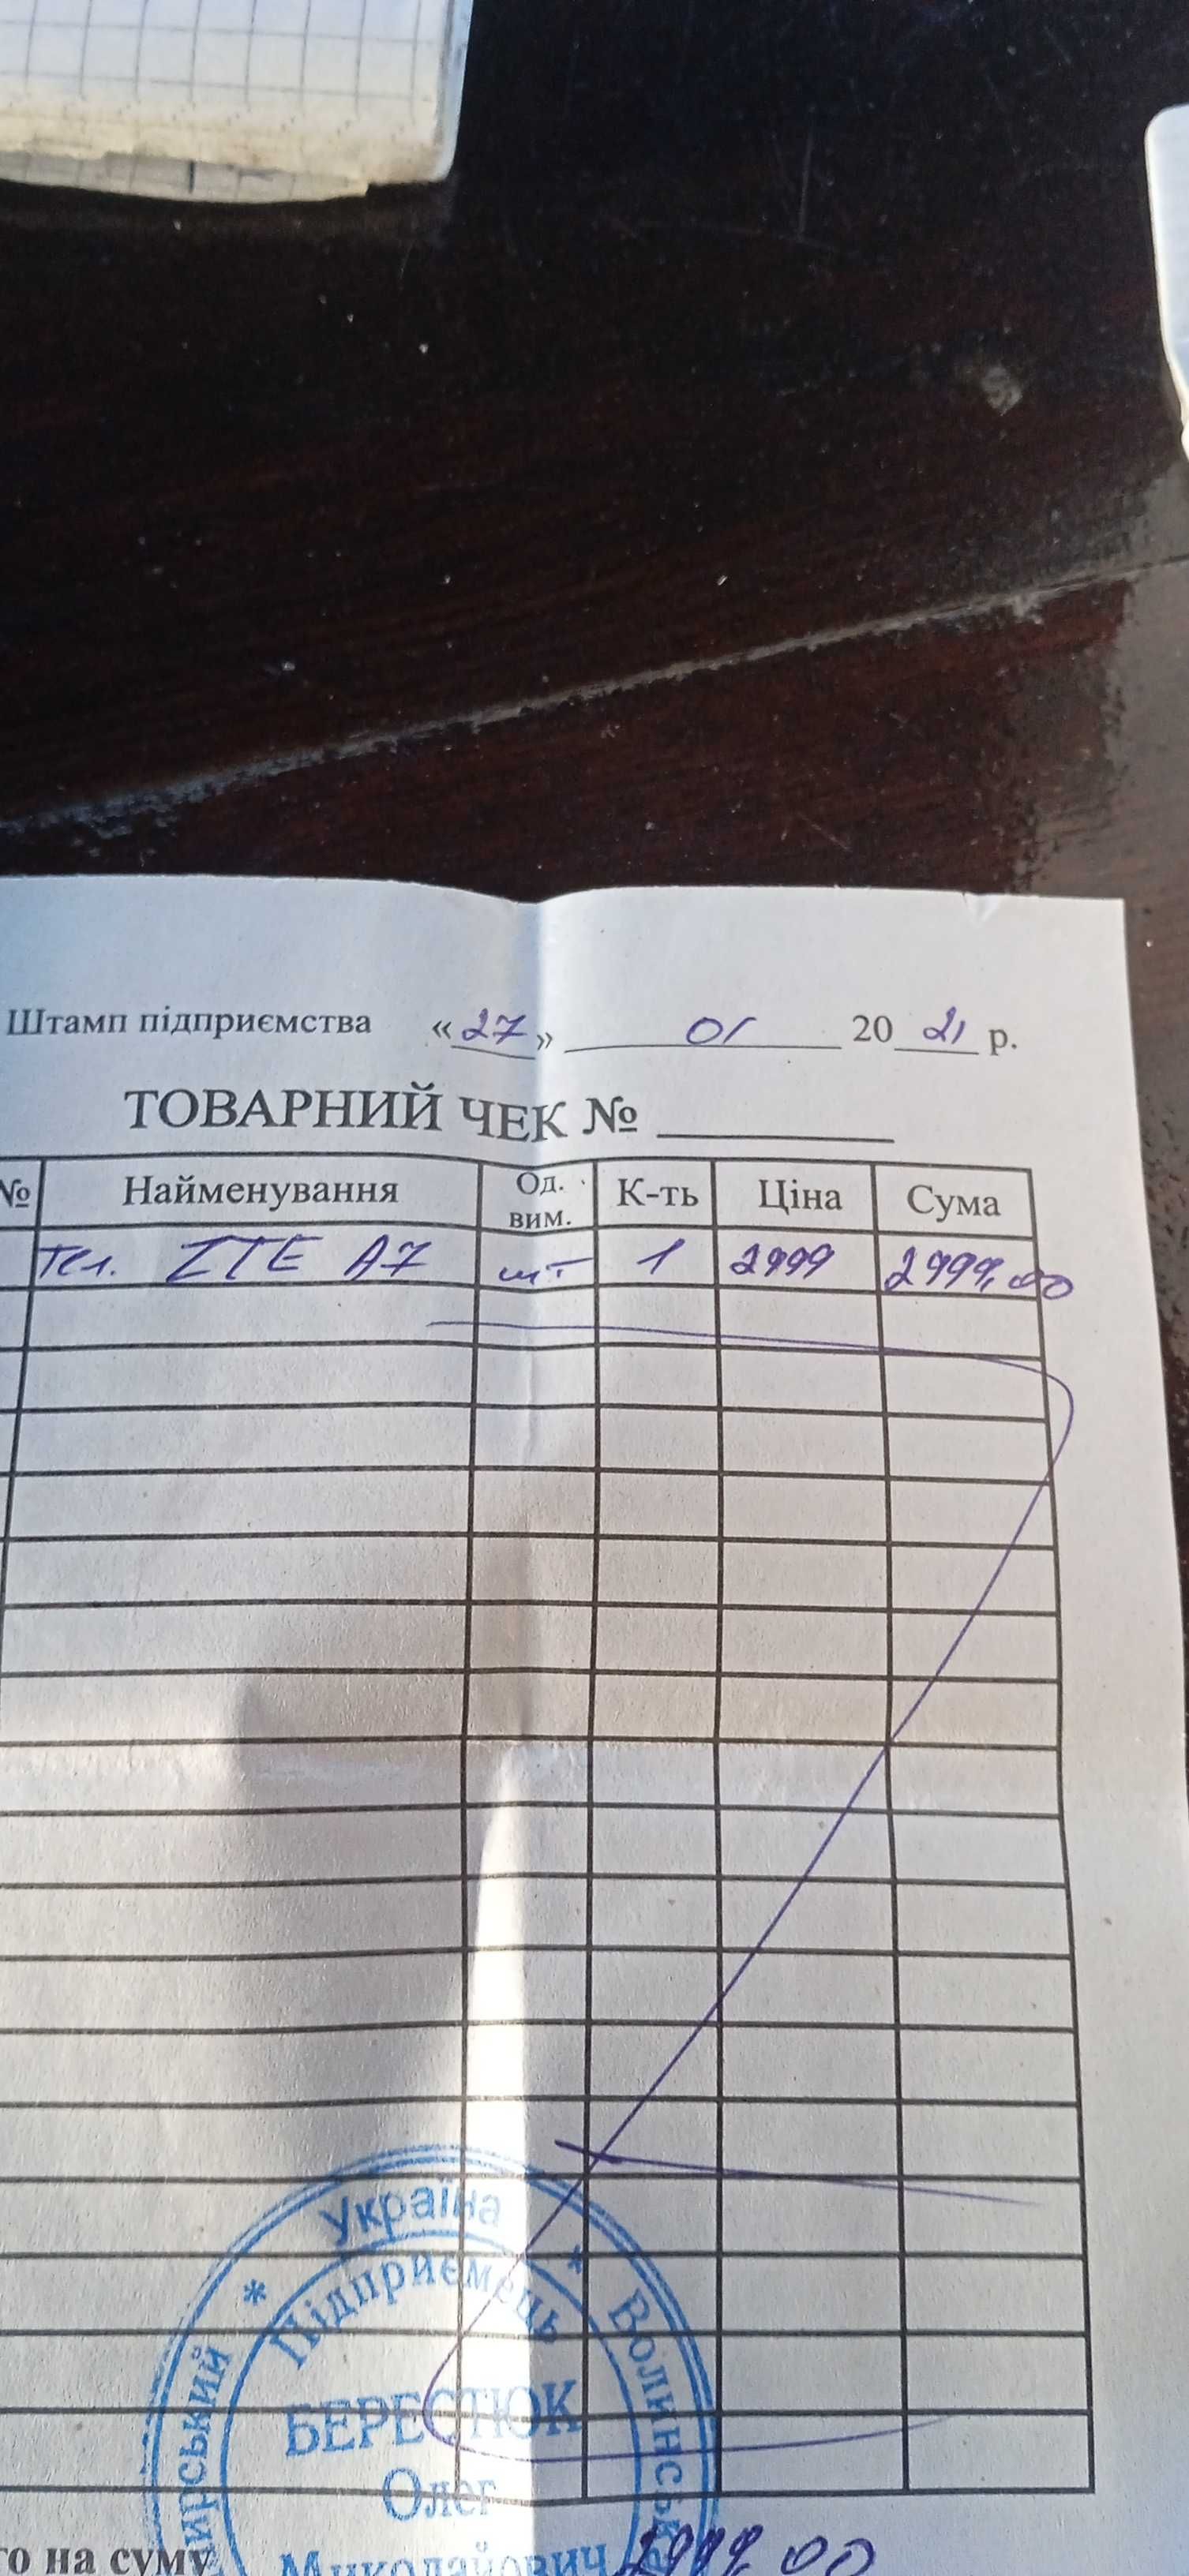 Штамп підприємства «27» 01 2021 р.
ТОВАРНИЙ ЧЕК №
№ Найменування Од. вим. К-ть Ціна Сума
Тел. ZTE A7 шт 1 2999 2999,00
Україна
Волинсь
ирський
Підприємець
БЕРЕСТЮК
Олег
Миколайович
го на суму 2999,00